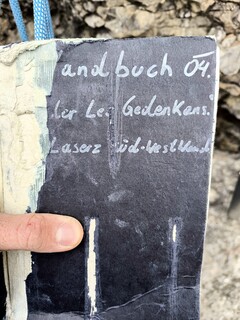 andbuch 04.
Gedenkens.
Laserz Süd-West Wand